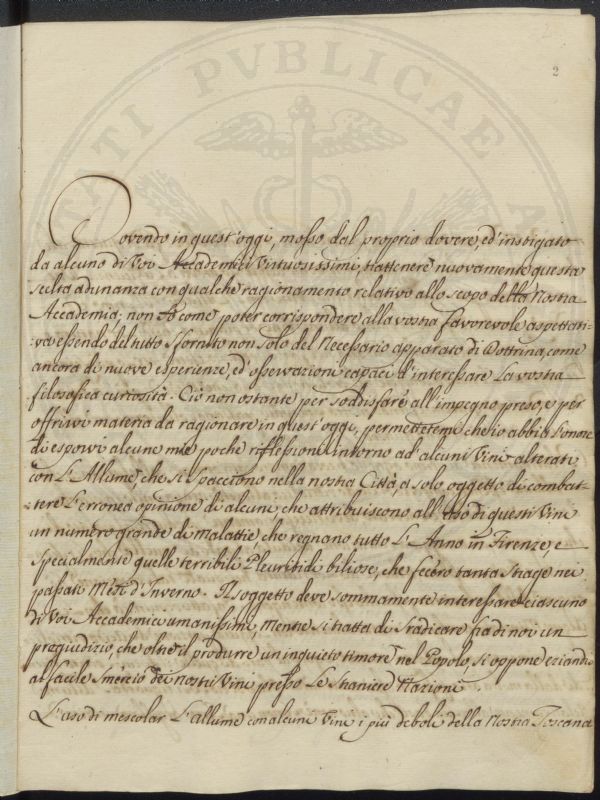 TATI PVBLICAE
2
Dovendo in quest'oggi, mosso dal proprio dovere, ed' instigato
da alcuno di Voi Accademici Virtuosissimi, trattenere nuovamente questa
scelta adunanza con qualche ragionamento relativo allo scopo della Nostra
Accademia; non so come poter corrispondere alla vostra favorevole aspettati-
:va essendo del tutto sfornito non solo del Necessario apparato di Dottrina, come
ancora di nuove esperienze, ed' osservazioni capaci d'interessare La vostra
filosofica curiosità. Ciò non ostante per soddisfare all'impegno preso, e per
offrirvi materia da ragionare in quest'oggi, permettetemi che io abbia l'onore
di esporvi alcune mie poche riflessioni intorno ad' alcuni Vini alterati
con L'Allume, che si spacciono nella nostra Città, a solo oggetto di combat-
:tere L'erronea opinione di alcuni, che attribuiscono all'uso di questi Vini
un numero grande di Malattie che regnano tutto L'Anno in Firenze, e
specialmente quelle terribili Pleuritidi biliose, che fecero tanta strage nei
passati Mesi d'Inverno. Il soggetto deve sommamente interessare ciascuno
di Voi Accademici umanissimi, mentre si tratta di sradicare fra di noi un
pregiudizio, che oltre il produrre un inquieto timore nel Popolo, si oppone eziandio
al facile smercio dei nostri Vini presso Le straniere Nazioni.
L'uso di mescolar L'allume con alcuni Vini i più deboli della Nostra Toscana